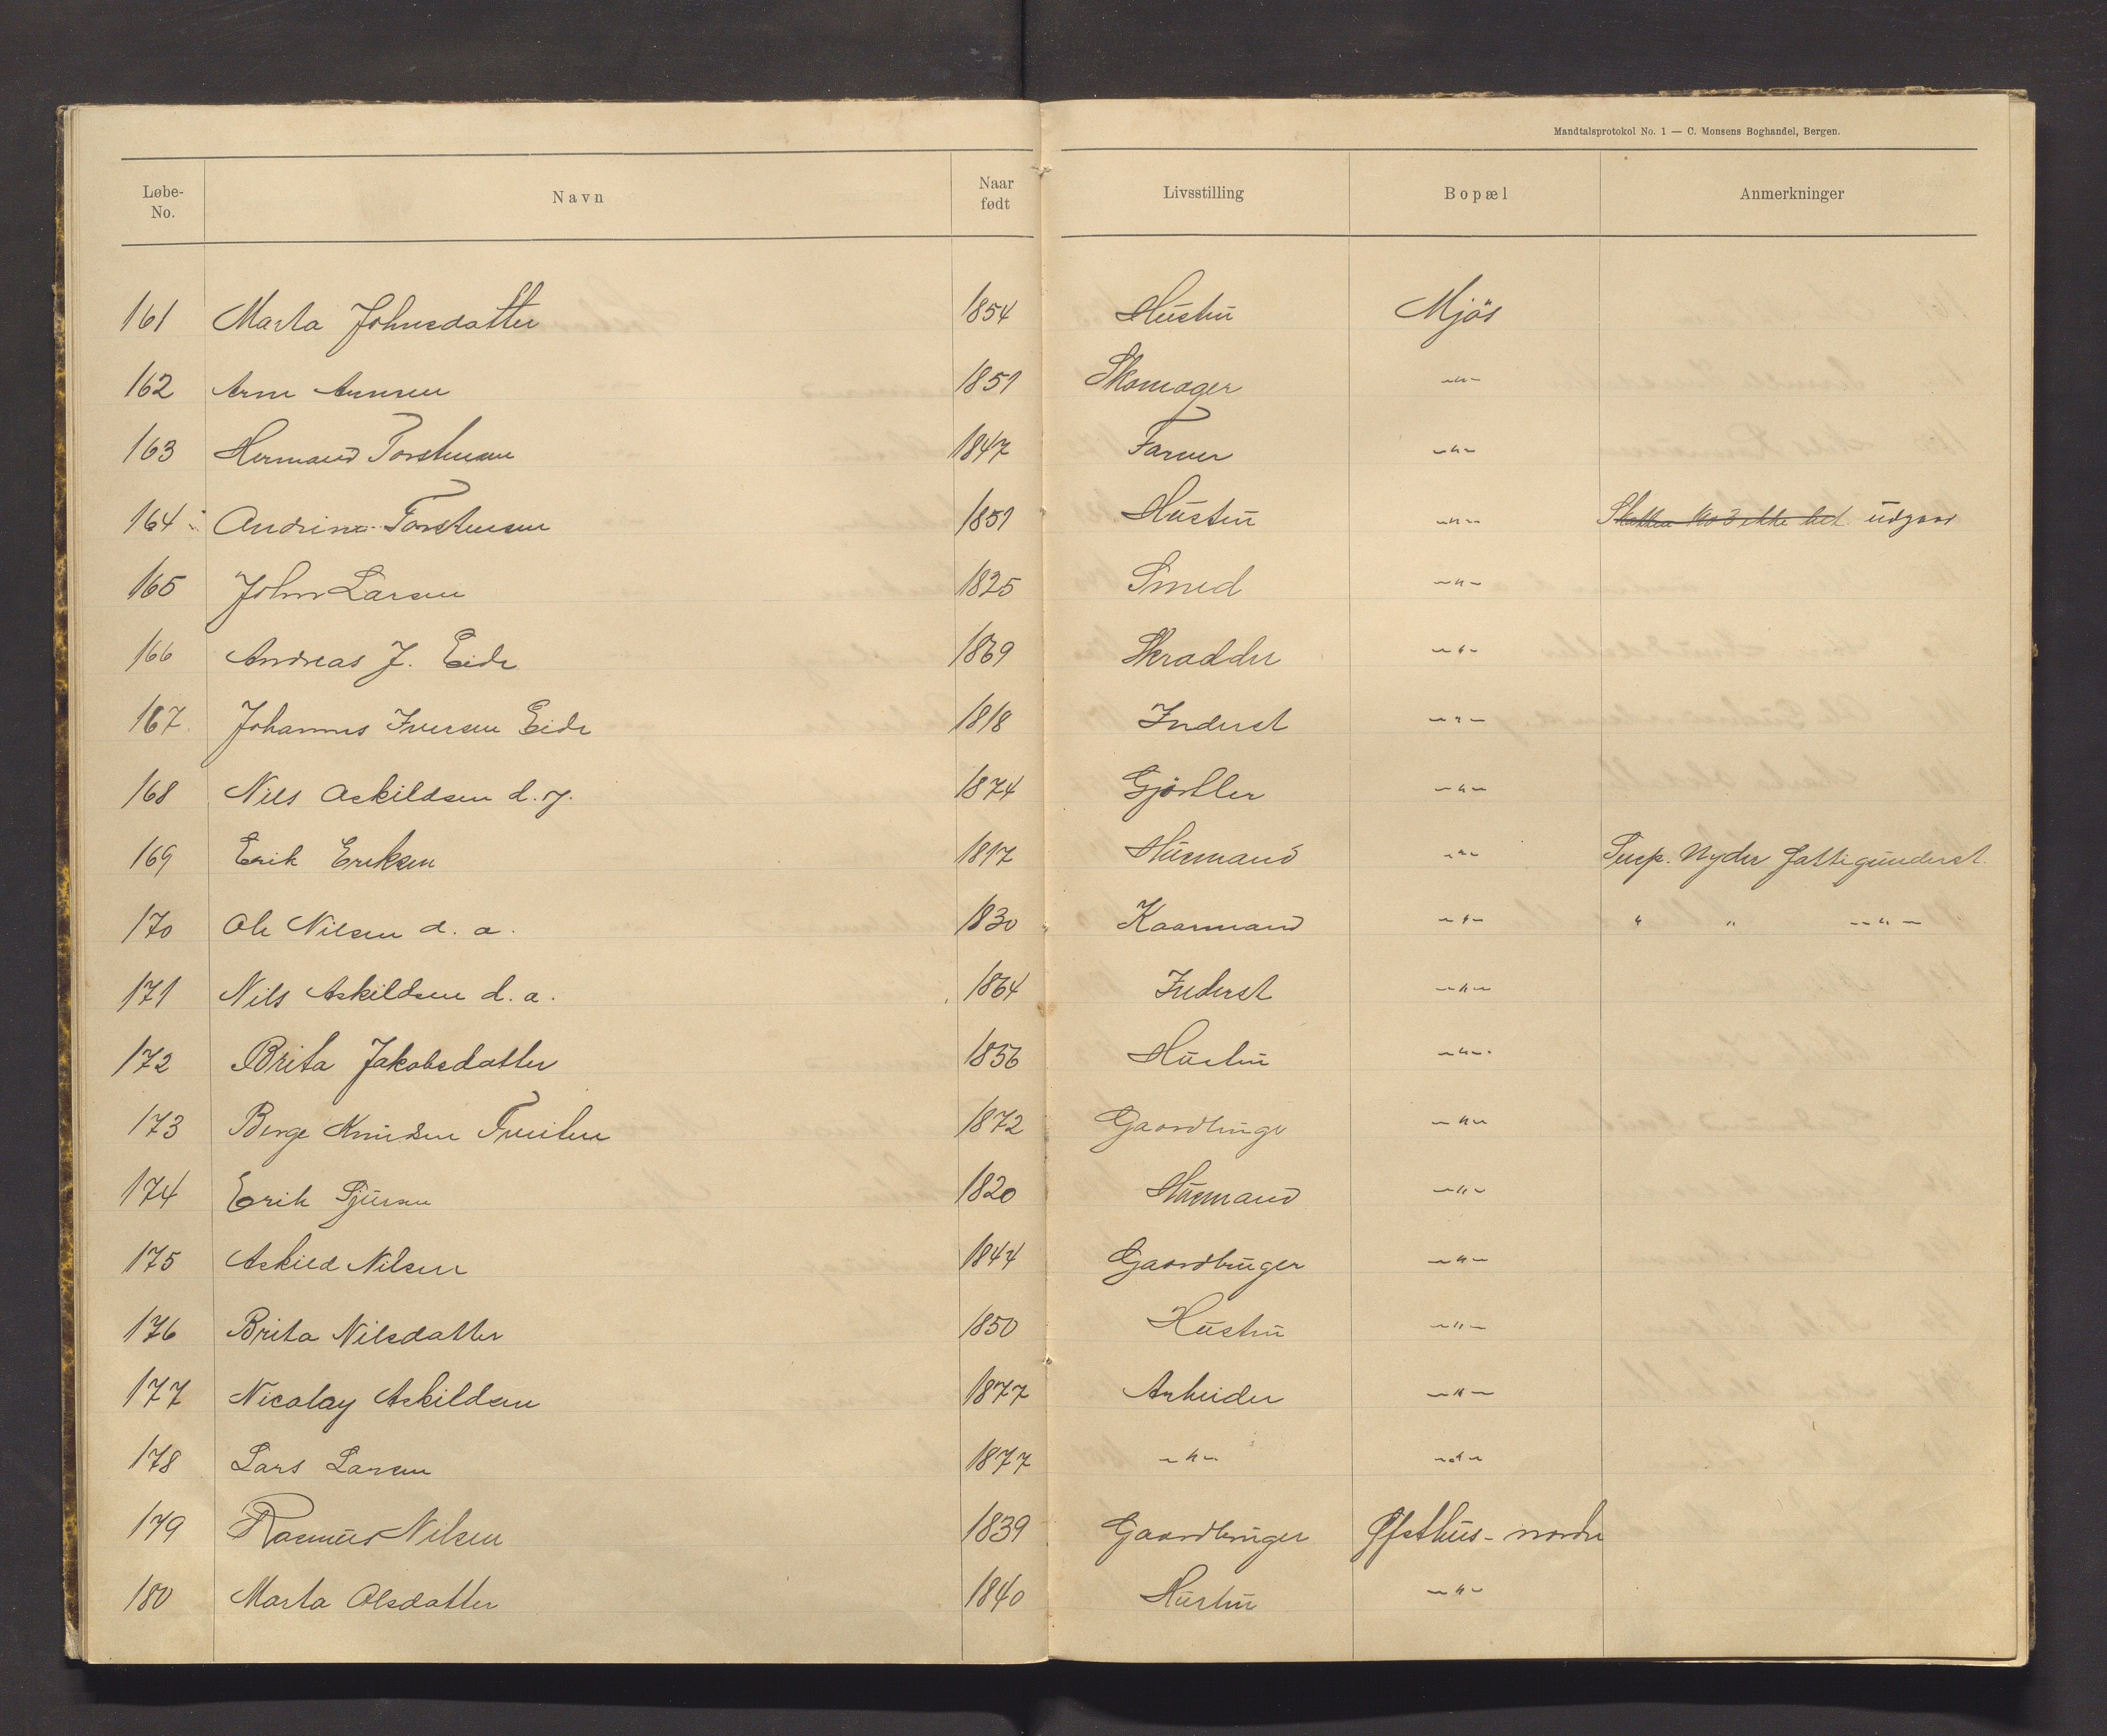 Mandtalsprotokol No. 1 — C. Monsens Boghandel, Bergen.
Løbe-No. Navn Naar født Livsstilling Bopæl Anmerkninger
161 Marta Johnsdatter 1854 Hustru Mjøs
162 Arne Arnesen 1851 Skomager -"-
163 Hermand Torstensen 1847 Farver -"-
164 Andrina Torstensen 1851 Hustru -"- Skatten ikke bet. udgaar
165 John Larsen 1825 Smed -"-
166 Andreas J. Eide 1869 Skradder -"-
167 Johannes Iversen Eide 1818 Inderst -"-
168 Nils Askildsen d.y. 1874 Gjørtler -"-
169 Erik Eriksen 1817 Husmand -"- Susp. Nyder fattigunderst.
170 Ole Nilsen d.a. 1830 Kaarmand -"- " " -"-
171 Nils Askildsen d.a. 1864 Inderst -"-
172 Brita Jakobsdatter 1836 Hustru -"-
173 Berge Knudsen 1872 Gaardbruger -"-
174 Erik Sjursen 1820 Husmand -"-
175 Askild Nilsen 1844 Gaardbruger -"-
176 Brita Nilsdatter 1850 Hustru -"-
177 Nicolay Askildsen 1877 Arbeider -"-
178 Lars Larsen 1877 -"- -"-
179 Rasmus Nilsen 1839 Gaardbruger Øfsthus-nordre
180 Marta Olsdatter 1840 Hustru -"-